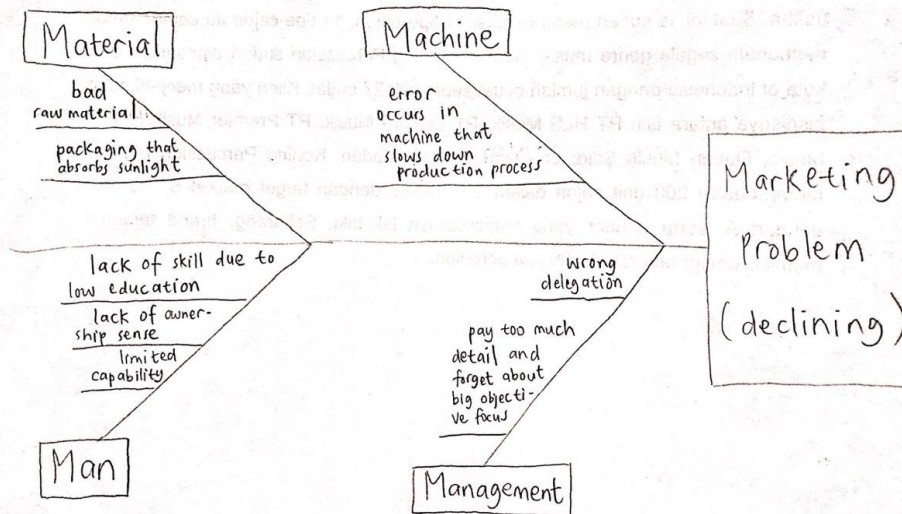 Material
bad
raw material
packaging that
absorbs sunlight
Machine
error
occurs in
machine that
slows down
production process
lack of skill due to
low education
lack of owner-
ship sense
limited
capability
Man
wrong
delegation
pay too much
detail and
forget about
big objecti-
ve focus
Management
Marketing
Problem
(declining)